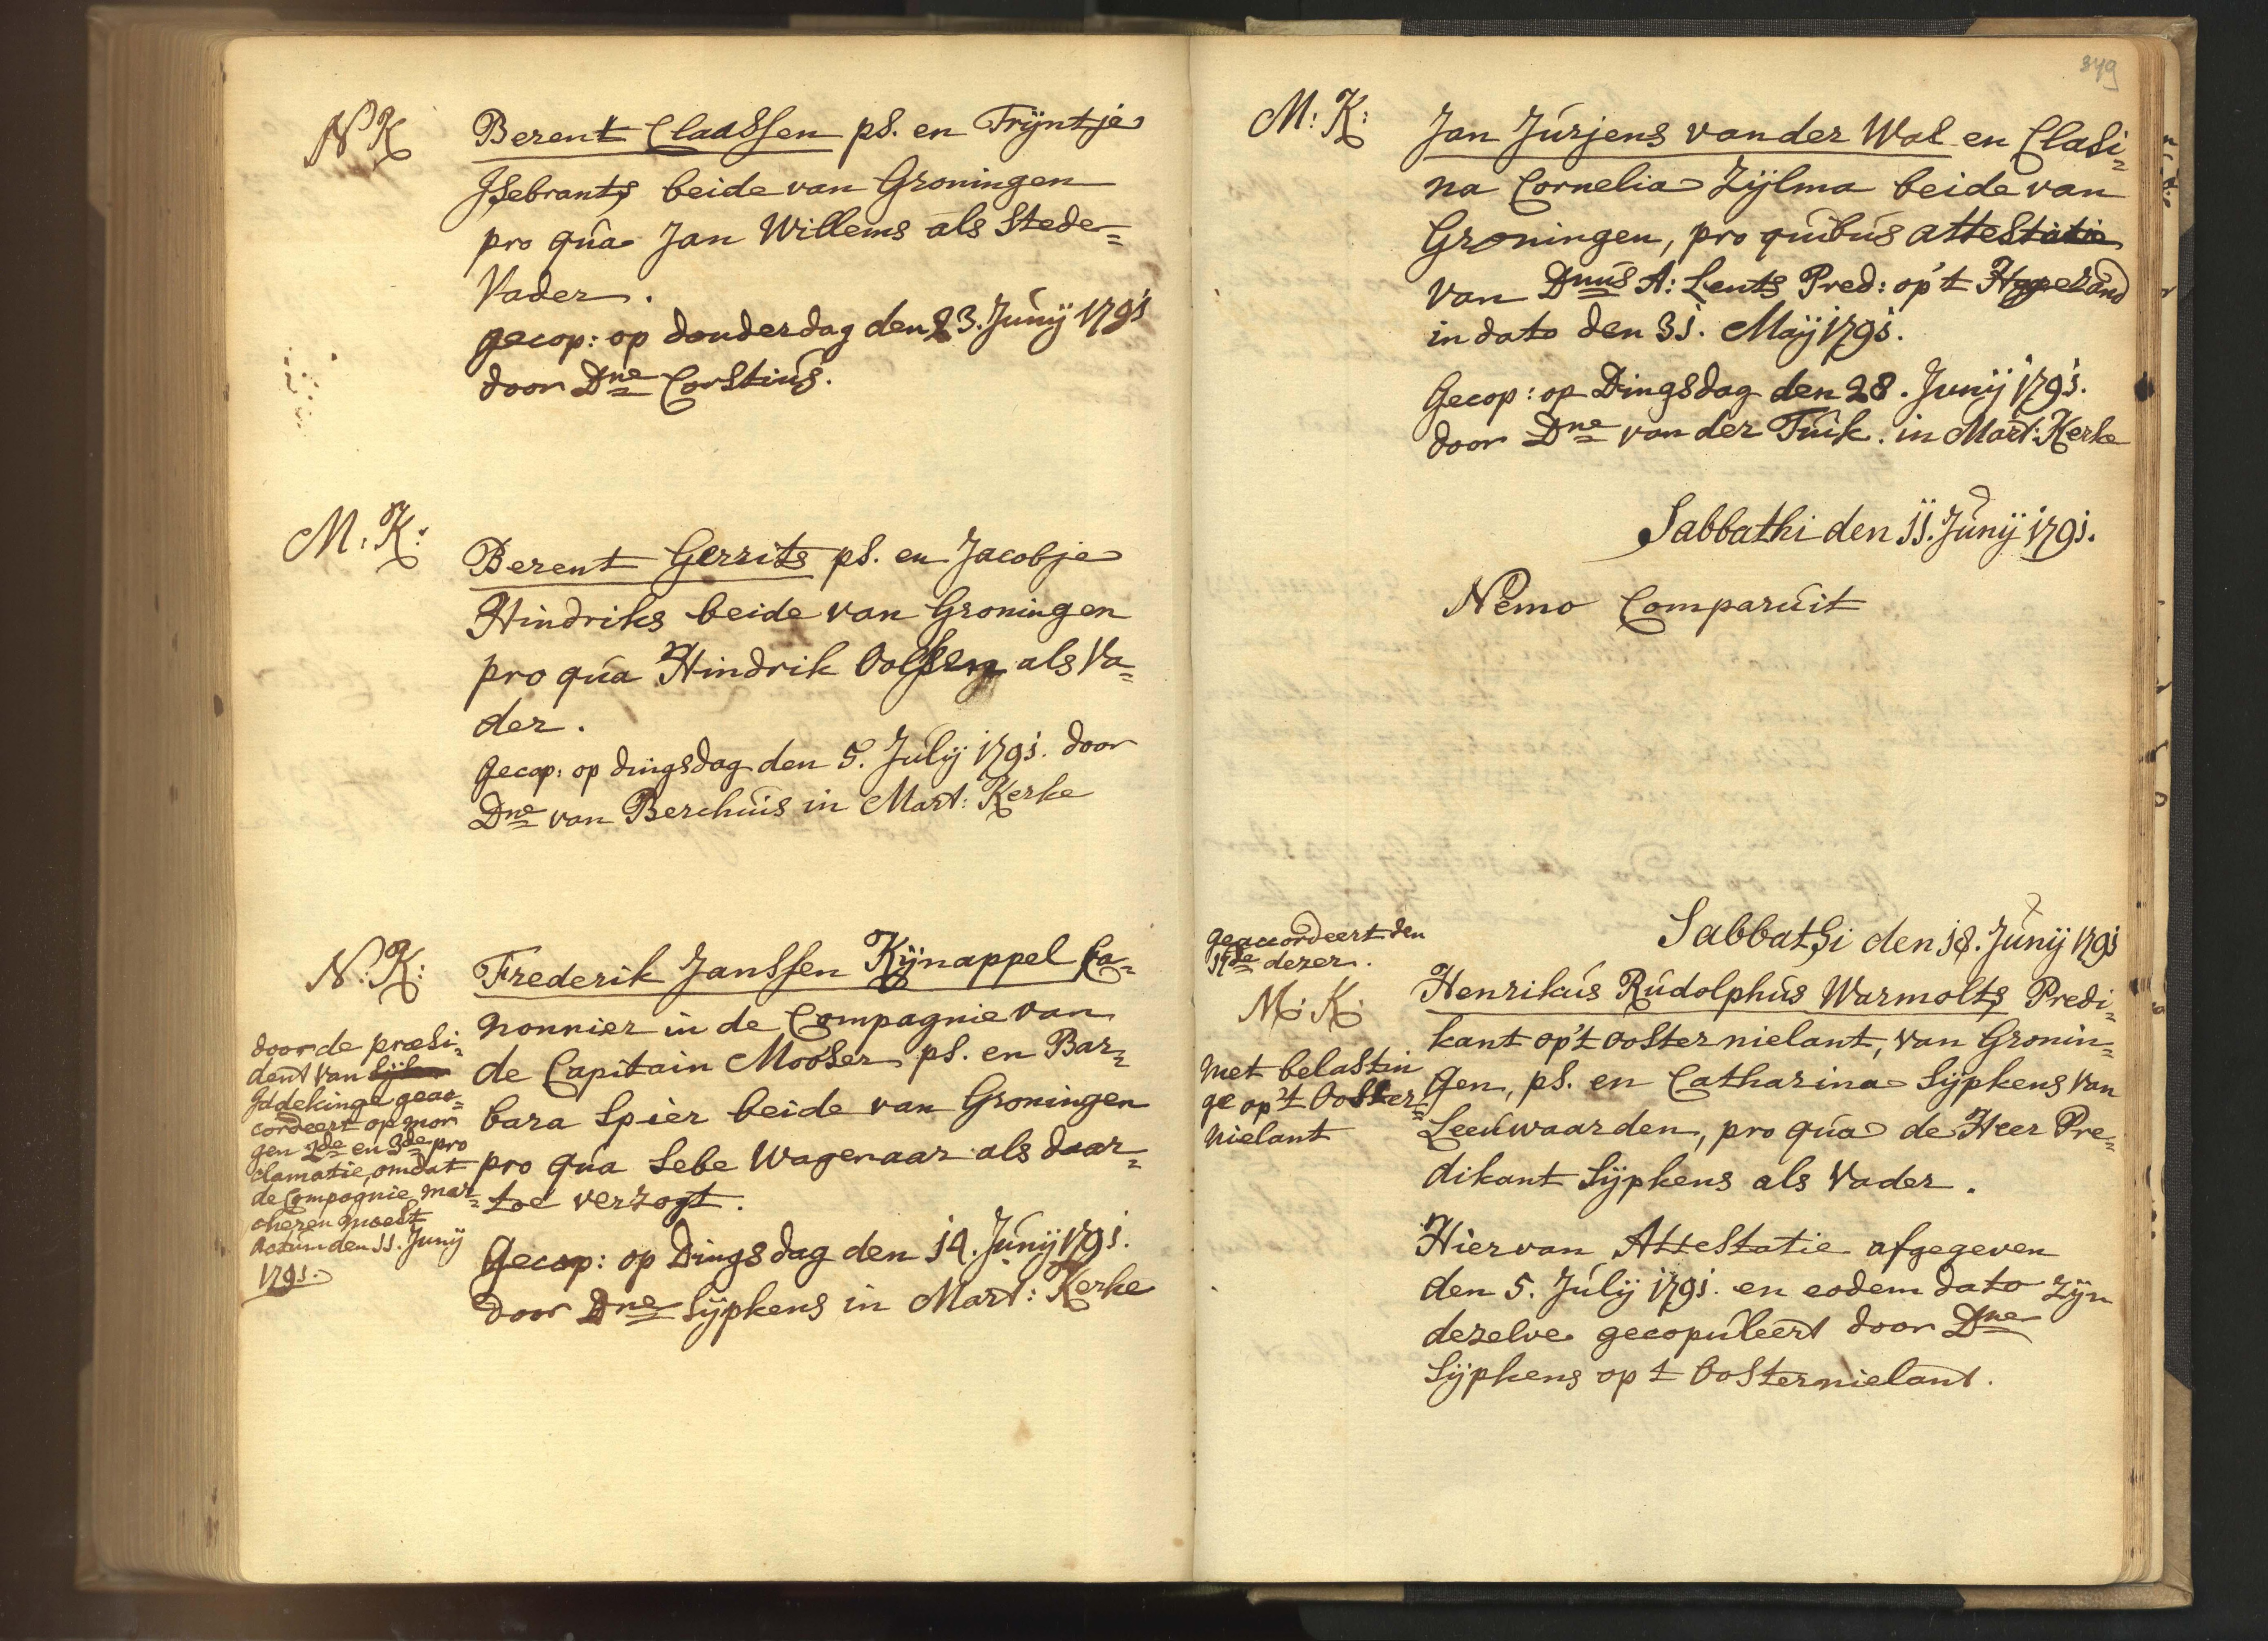 N K
Berent Claassen ps. en Trijntje
Jsebrants beide van Groningen
pro qua Jan Willems als Stede=
Vader.
gecop: op donderdag den 23. Junij 1791
door Dne Corstius.
M: K:
Berent Gerrits ps. en Jacobje
Hindriks beide van Groningen
pro qua Hindrik als Va=
der.
gecop: op dingsdag den 5. Julij 1791. door
Dne van Berchuis in Mart: Kerke
N: K:
Frederik Janssen Kijnappel Ca=
nonnier in de Compagnie van
de Capitain Mooser ps. en Bar=
bara Spier beide van Groningen
pro qua Sebe Wagenaar als daar=
toe verzogt.
Gecop: op Dingsdag den 14. Junij 1791.
door Dne Sijpkens in Mart: Kerke
door de præsi=
dent van
Addekinge geac=
cordeert op mor
gen 2de en 3de pro
clamatie, omdat
de Compagnie mar=
cheren moest
Actum den 11. Junij
1791.
349
M: K:
Jan Jurjens van der Wal en Clasi=
na Cornelia Zijlma beide van
Groningen, pro quibus attestatie
van Dnus A: Lents Pred: op 't Hogeland
in dato den 31. Maij 1791.
Gecop: op Dingsdag den 28. Junij 1791.
door Dne van der Tuik. in Mart: Kerke
Sabbathi den 11. Junij 1791.
Nemo Comparuit
Sabbathi den 18. Junij 1791
geaccordeert den
17de dezer.
M: K:
met belastin
ge op 't Ooster=
nielant
Henrikus Rudolphus Warmolts Predi=
kant op 't Ooster nielant, van Gronin=
gen, ps. en Catharina Sijpkens van
Leeuwaarden, pro qua de Heer Pre=
dikant Sijpkens als Vader.
Hiervan Attestatie afgegeven
den 5. Julij 1791. en eodem dato zijn
dezelve gecopuleert door Dne
Sijpkens op t Oosternielant.